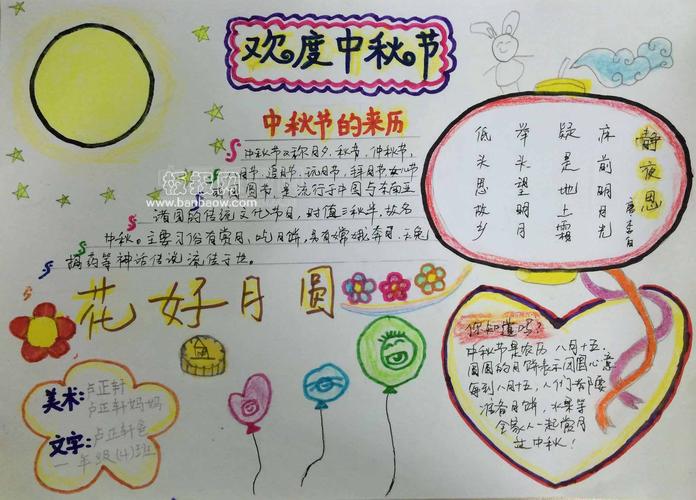 欢度中秋节
中秋节的来历
中秋节又称月夕、秋节、仲秋节、
月节、追月节、玩月节、拜月节、女儿节
圆节,是流行于中国与东南亚
诸国的传统文化节日,时值三秋半,故名
中秋。主要习俗有赏月、吃月饼,另有嫦娥奔月、玉兔
捣药等神话传说流传于世。
板报网
www.banbaow.com
静夜思
唐 李白
床前明月光
疑是地上霜
举头望明月
低头思故乡
花好月圆
你知道吗?
中秋节是农历八月十五,
圆圆的月饼表示团圆心意
每到八月十五,人们都要
准备月饼,水果等
全家人一起赏月
过中秋!
美术:卢正轩
卢正轩妈妈
文字:卢正轩爸
一年级(4)班